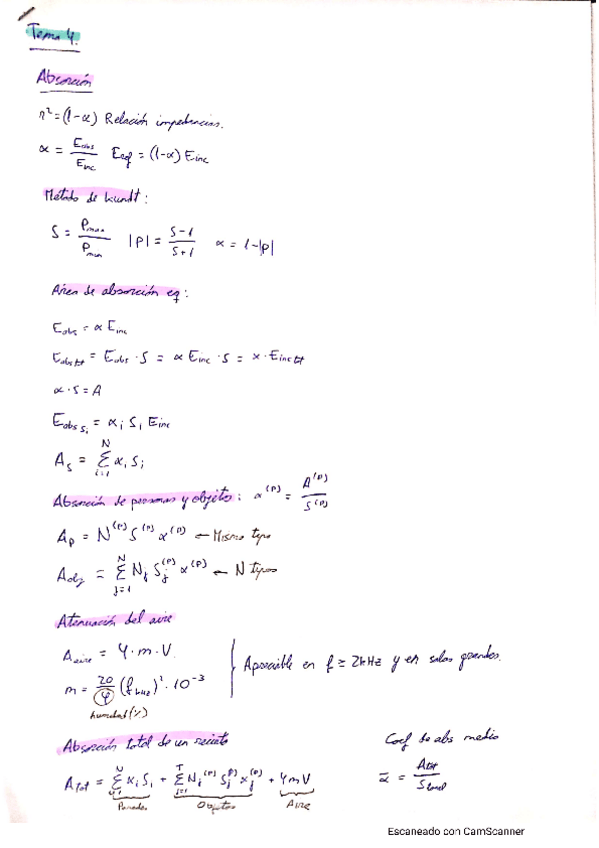 Tema 4.
Absorción
r² = (1-α) Relación impedancias.
α = Eabs / Einc   Eref = (1-α) Einc
Método de kundt:
S = Pmax / Pmin   |P| = S-1 / S+1   α = 1-|P|
Área de absorción eq:
Eabs = α Einc
Eabs tot = Eabs · S = α Einc · S = α · Einc tot
α · S = A
Eabs Si = αi Si Einc
As = Σ(i=1..N) αi Si
Absorción de personas y objetos: α^(P) = A^(P) / S^(P)
Ap = N^(P) S^(P) α^(P) ← Mismo tipo
Aobj = Σ(j=1..N) Nj Sj^(P) α^(P) ← N tipos
Atenuación del aire
Aaire = 4 · m · V.
m = 20/φ (fkHz)² · 10⁻³
humedad (%)
Apreciable en f ≥ 2kHz y en salas grandes.
Absorción total de un recinto
Atot = Σ(i=1..N) αi Si + Σ(j=1..T) Nj^(P) Sj^(P) αj^(P) + 4mV
Paredes Objetos Aire
Coef de abs medio
ᾱ = Atot / Slocal
Escaneado con CamScanner